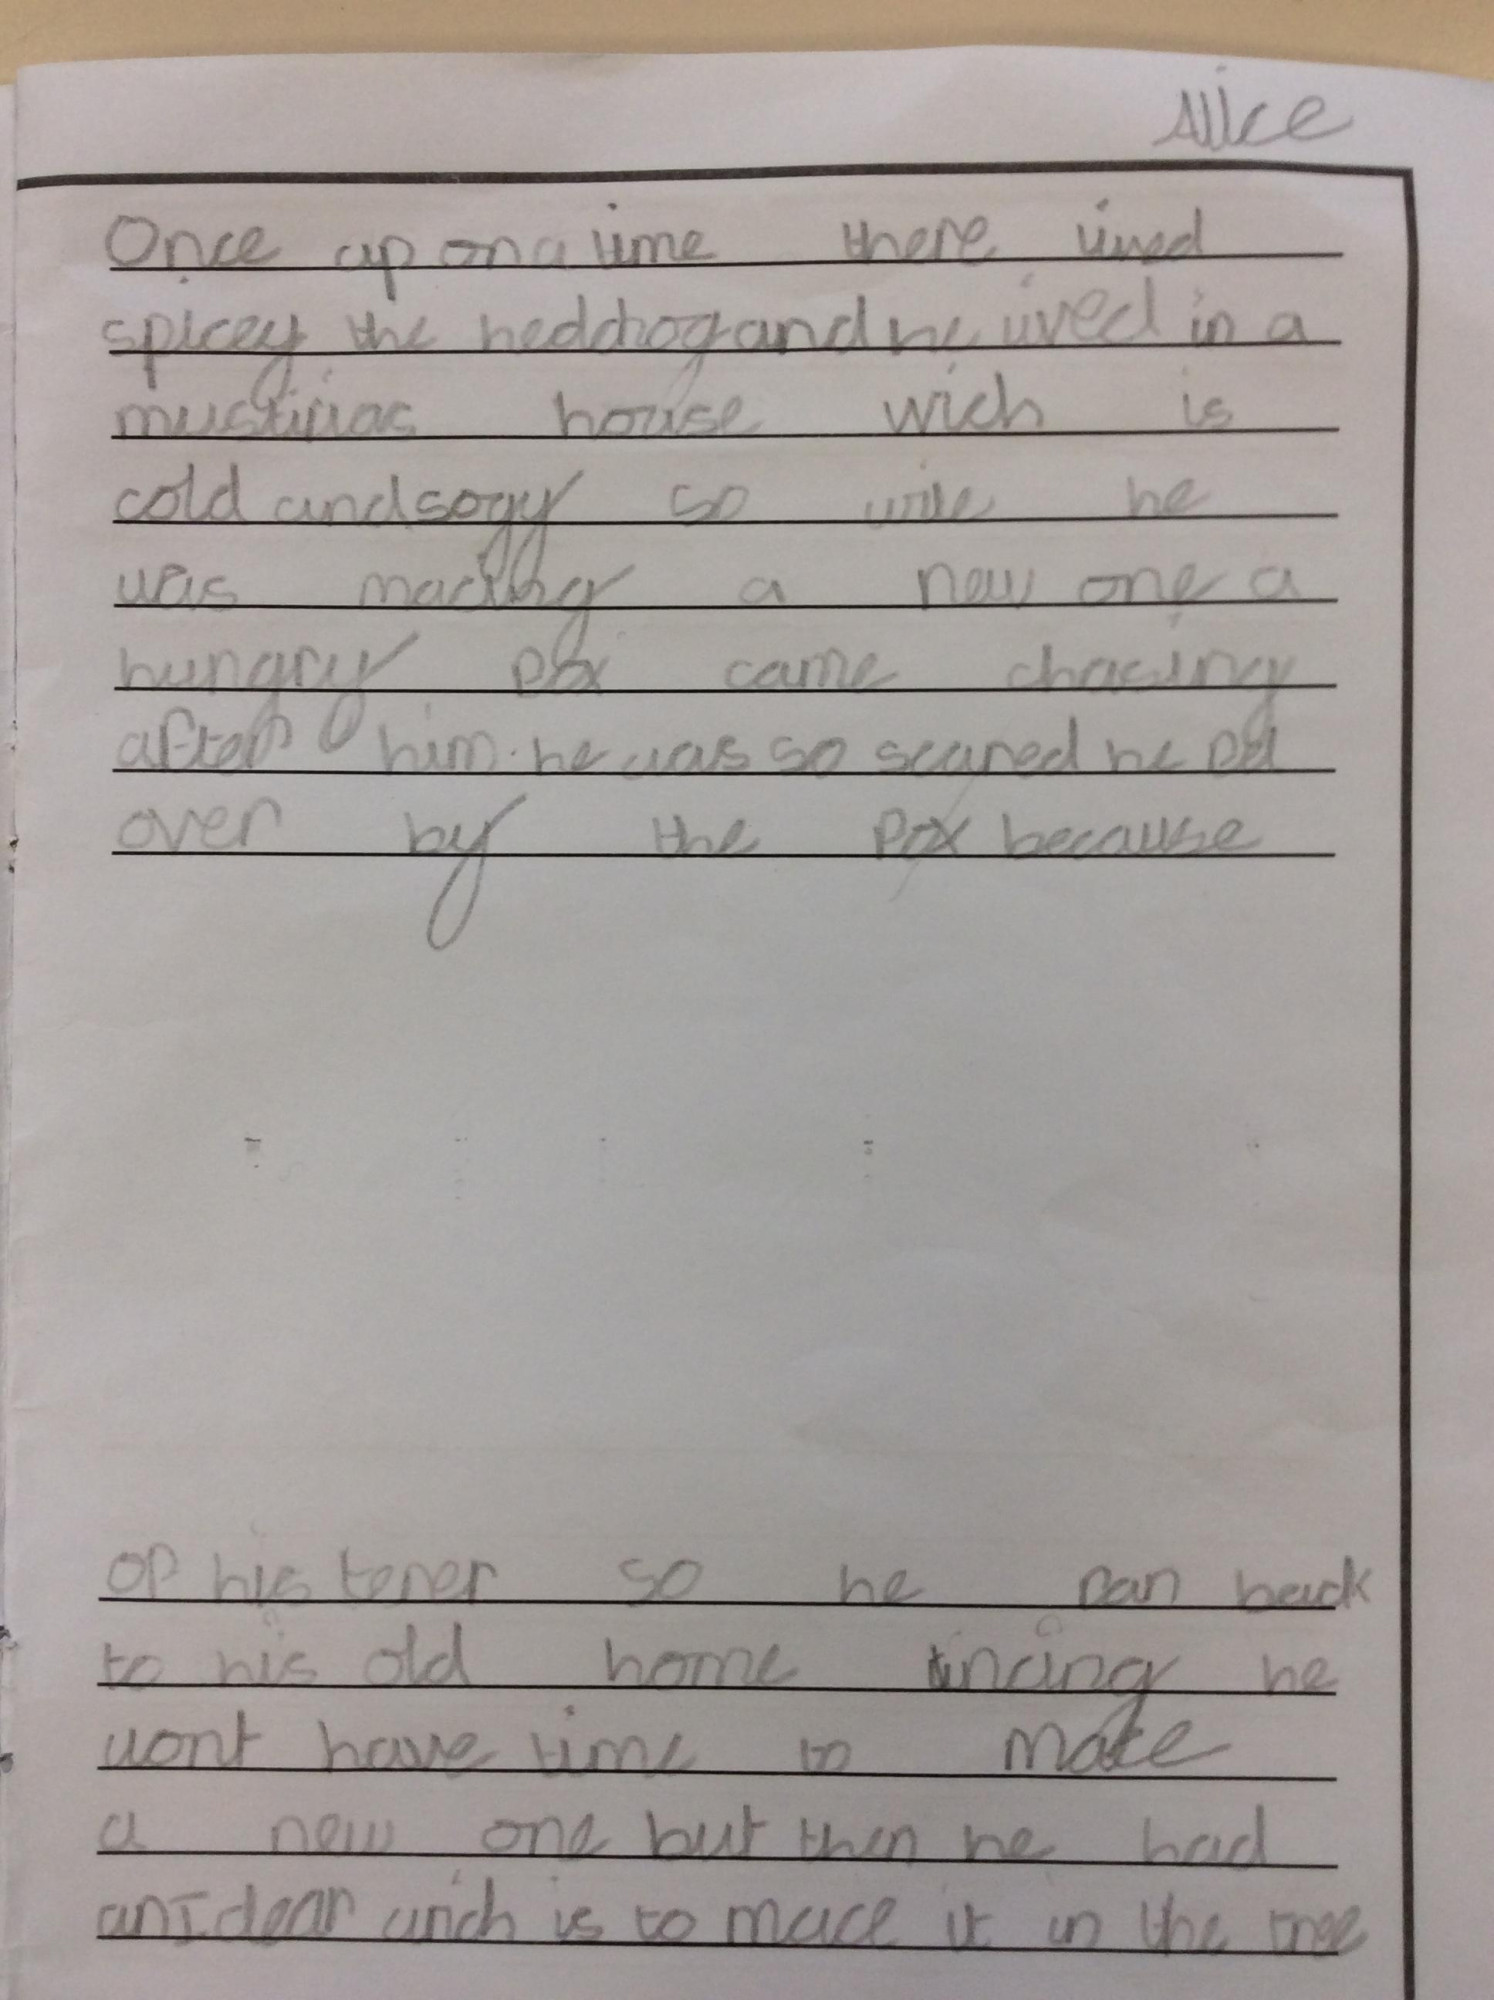 Alice
Once upon a time there lived
spicey the hedchog and he lived in a
mustirias house wich is
cold and sogy so wile he
was macing a new one a
hungry fox came chacing
after him. he was so scared he
over by the fox because
of his so he ran back
to his old home he
wont have time to make
a new one but then he had
an Idear wich is to mace it in the tree